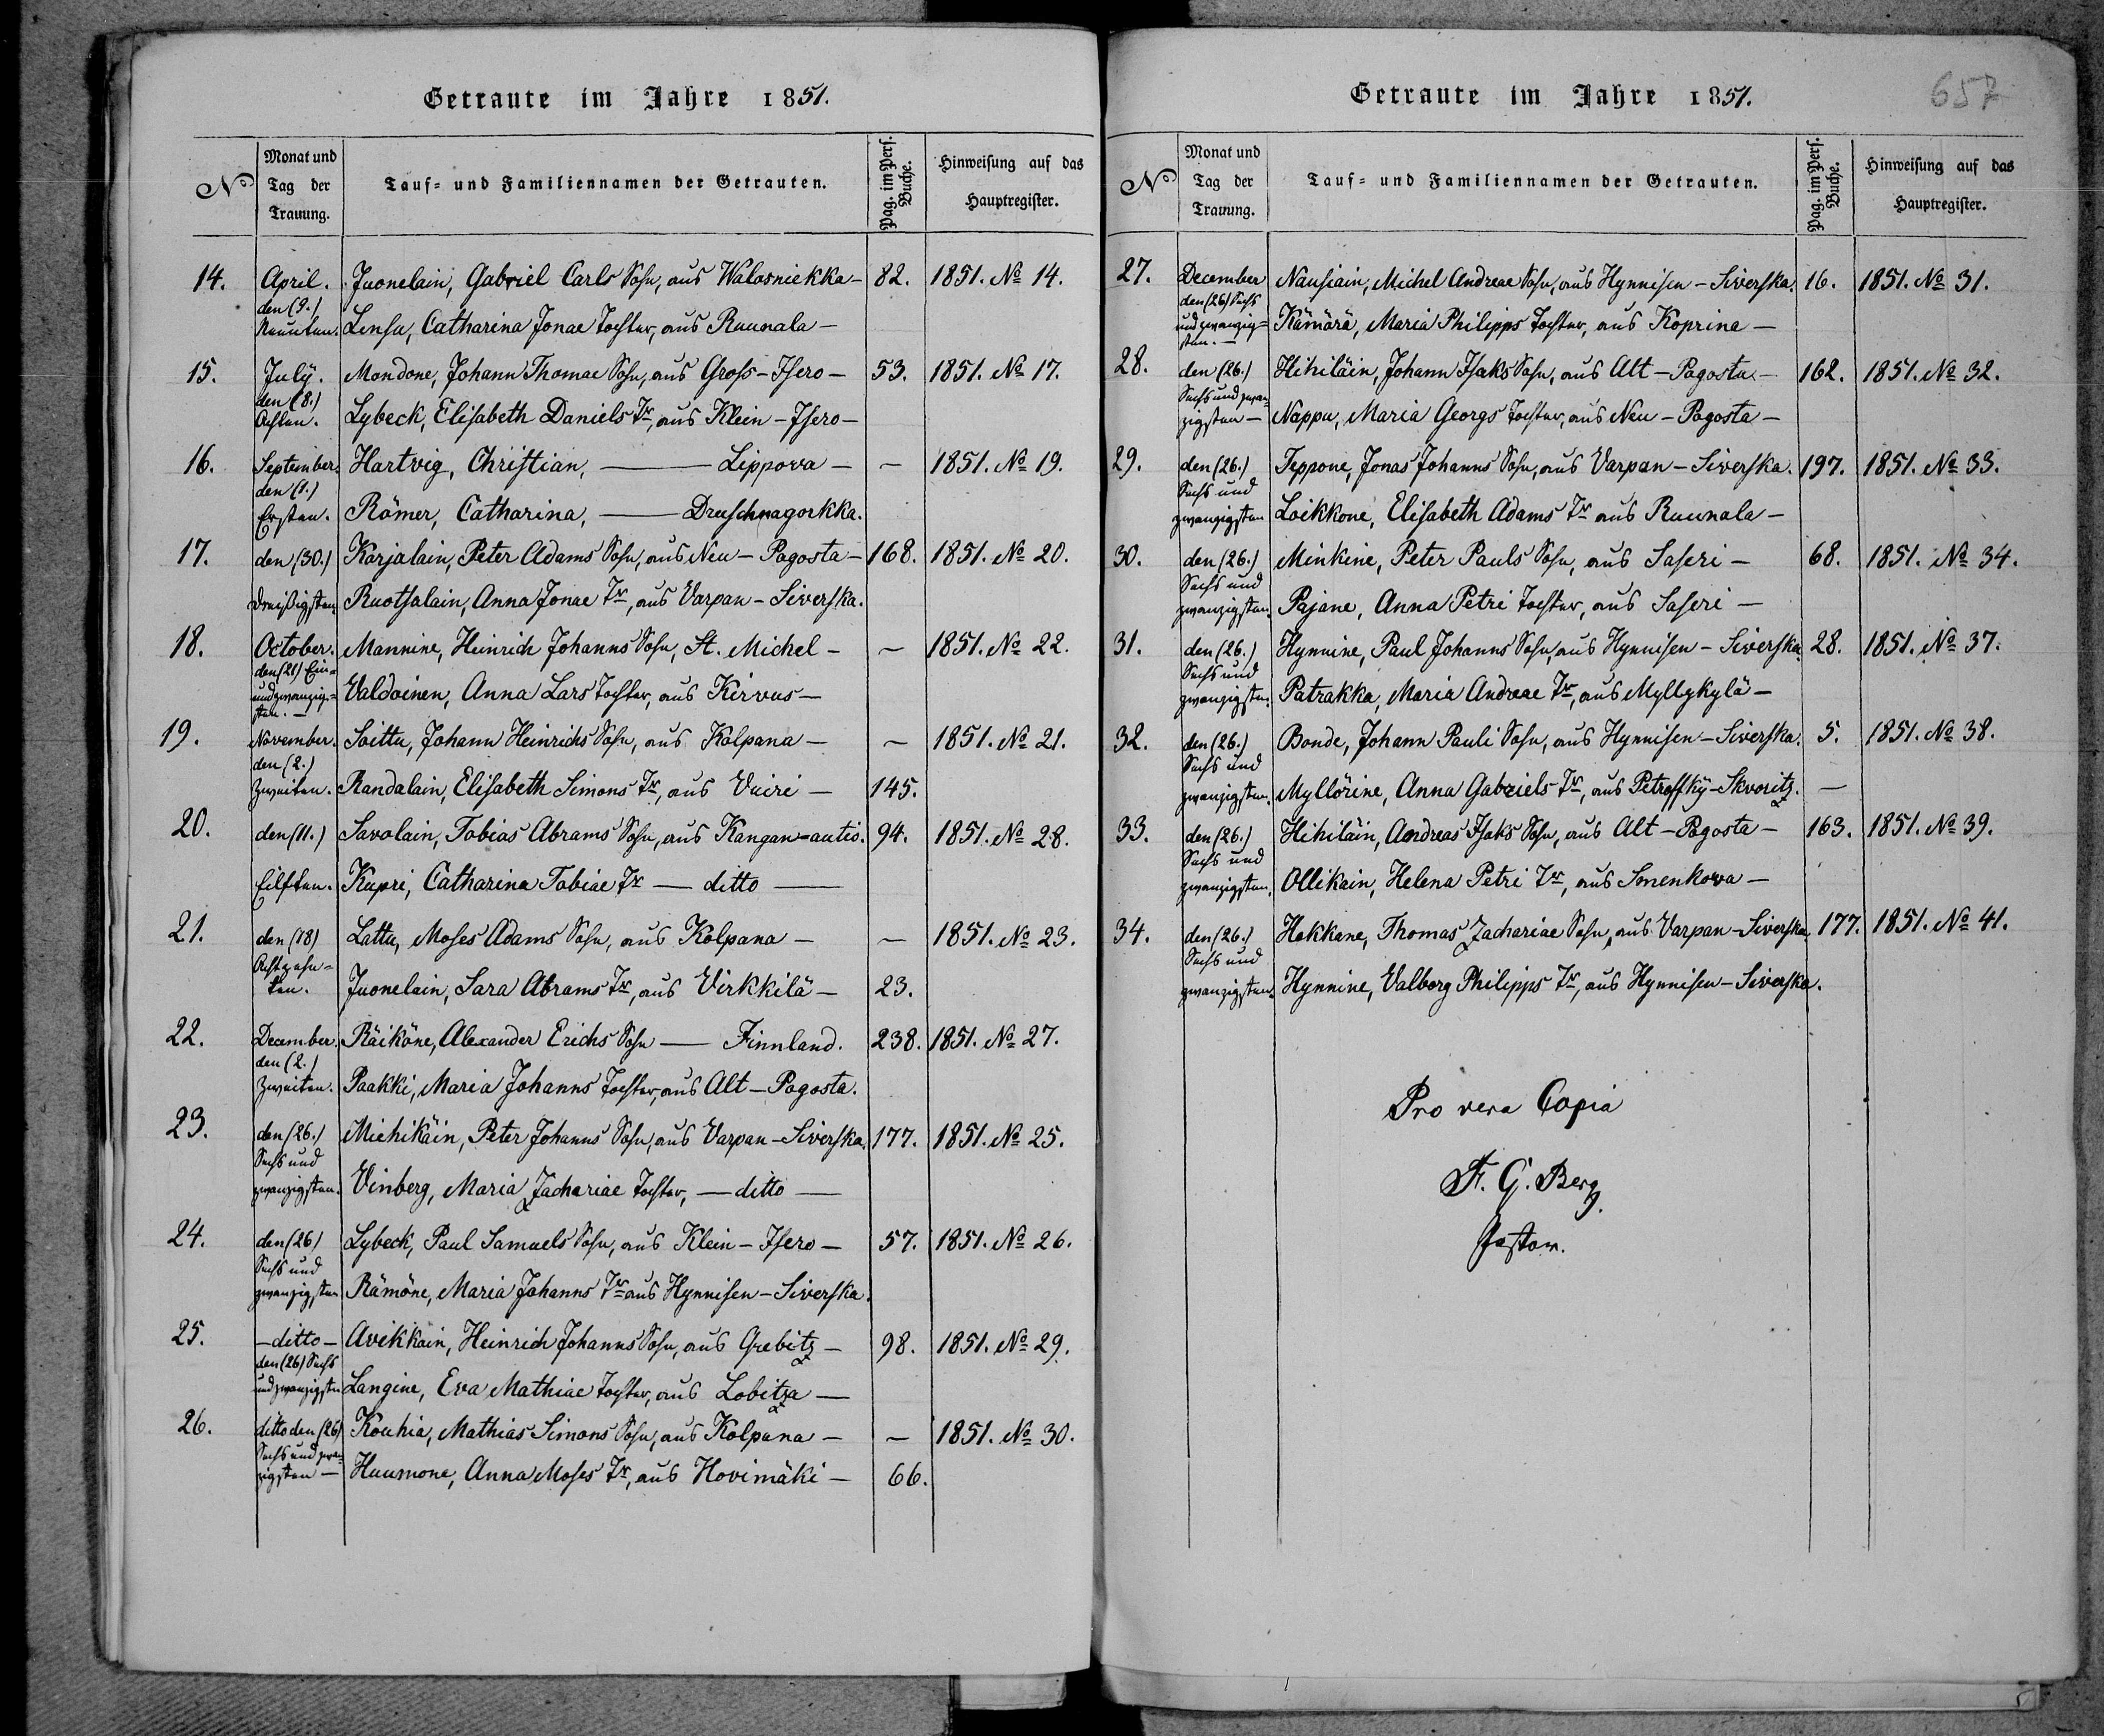 Getraute im Jahre 1851.
No
Monat und Tag der Trauung.
Tauf- und Familiennamen der Getrauten.
Pag. im Pers. Buche.
Hinweisung auf das Hauptregister.
14. April. Juonelain, Gabriel Carls Sohn, aus Walosniekka — 82. 1851. No 14.
den (9.)
Neunten. Lensu, Catharina Jonae Tochter, aus Ruunala —
15. July. Mondone, Johann Thomae Sohn, aus Gross-Isero — 53. 1851. No 17.
den (8.)
Achten. Lybeck, Elisabeth Daniels Tr, aus Klein-Isero —
16. September. Hartvig, Christian, — Lippova — — 1851. No 19.
den (1.)
Ersten. Römer, Catharina, — Dreuschnagorkka.
17. den (30.) Karjalain, Peter Adams Sohn, aus Neu-Pagosta — 168. 1851. No 20.
Dreißigsten Ruotsalain, Anna Jonae Tr, aus Varpan-Siverska.
18. October. Mannine, Heinrich Johanns Sohn, St. Michel — — 1851. No 22.
den (21) Ein=
und zwanzig=
sten. — Valdoinen, Anna Lars Tochter, aus Kirvus —
19. November. Soittu, Johann Heinrichs Sohn, aus Kolpana — — 1851. No 21.
den (2.)
Zweiten. Randalain, Elisabeth Simons Tr, aus Vuiri — 145.
20. den (11.) Savolain, Tobias Abrams Sohn, aus Kangan=autio. 94. 1851. No 28.
Eilften. Kupri, Catharina Tobiae Tr — ditto —
21. den (18) Lattu, Moses Adams Sohn, aus Kolpana — — 1851. No 23.
Achtzehn=
ten. Juonelain, Sara Abrams Tr, aus Virkkilä — 23.
22. December. Räiköne, Alexander Erichs Sohn — Finnland. 238. 1851. No 27.
den (2.)
Zweiten. Paakki, Maria Johanns Tochter, aus Alt-Pagosta.
23. den (26.) Miehikäin, Peter Johanns Sohn, aus Varpan-Siverska. 177. 1851. No 25.
Sechs und
zwanzigsten. Vinberg, Maria Zachariae Tochter, — ditto —
24. den (26) Lybeck, Paul Samuels Sohn, aus Klein-Isero — 57. 1851. No 26.
Sechs und
zwanzigsten Rämöne, Maria Johanns Tr aus Hynnisen-Siverska.
25. — ditto — Avikkain, Heinrich Johanns Sohn, aus Grebitz — 98. 1851. No 29.
den (26) Sechs
und zwanzigsten Langine, Eva Mathiae Tochter, aus Lobitza —
26. ditto den (26) Kouhia, Mathias Simons Sohn, aus Kolpana — — 1851. No 30.
Sechs und zwan=
zigsten — Huumone, Anna Moses Tr, aus Hovimäki — 66.
Getraute im Jahre 1851.
657
No
Monat und Tag der Trauung.
Tauf- und Familiennamen der Getrauten.
Pag. im Pers. Buche.
Hinweisung auf das Hauptregister.
27. December Nausiain, Michel Andreae Sohn, aus Hynnisen-Siverska. 16. 1851. No 31.
den (26) Sechs
und zwanzig=
sten. — Kämärä, Maria Philipps Tochter, aus Koprina —
28. den (26.) Hihiläin, Johann Isaks Sohn, aus Alt-Pagosta — 162. 1851. No 32.
Sechs und zwan=
zigsten — Nappu, Maria Georgs Tochter, aus Neu-Pagosta —
29. den (26.) Teppone, Jonas Johanns Sohn, aus Varpan-Siverska. 197. 1851. No 33.
Sechs und
zwanzigsten Loikkone, Elisabeth Adams Tr aus Ruunala —
30. den (26.) Minkine, Peter Pauls Sohn, aus Saseri — 68. 1851. No 34.
Sechs und
zwanzigsten. Pajane, Anna Petri Tochter, aus Saseri —
31. den (26.) Hynnine, Paul Johanns Sohn, aus Hynnisen-Siverska. 28. 1851. No 37.
Sechs und
zwanzigsten. Patrakka, Maria Andreae Tr, aus Myllykylä —
32. den (26.) Bonde, Johann Pauli Sohn, aus Hynnisen-Siverska. 5. 1851. No 38.
Sechs und
zwanzigsten. Myllörine, Anna Gabriels Tr, aus Petroffky-Skvoritz. —
33. den (26.) Hihiläin, Andreas Isaks Sohn, aus Alt-Pagosta — 163. 1851. No 39.
Sechs und
zwanzigsten. Ollikain, Helena Petri Tr, aus Smenkowa —
34. den (26.) Hakkane, Thomas Zachariae Sohn, aus Varpan-Siverska 177. 1851. No 41.
Sechs und
zwanzigsten. Hynnine, Valborg Philipps Tr, aus Hynnisen-Siverska.
Pro vera Copia
F. G. Berg.
Pastor.